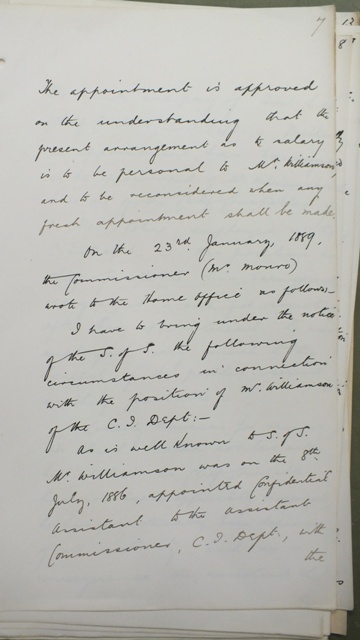 7
The appointment is approved
on the understanding that the
present arrangement as to salary
is to be personal to Mr. Williamson
and to be reconsidered when any
fresh appointment shall be made.
On the 23rd January, 1889,
the Commissioner (Mr. Monro)
wrote to the Home Office as follows:-
I have to bring under the notice
of the S. of S. the following
circumstances in connection
with the position of Mr. Williamson
of the C. I. Dept:-
As is well known to S. of S.
Mr. Williamson was on the 8th
July, 1886, appointed Confidential
Assistant to the Assistant
Commissioner, C. I. Dept:, with
the